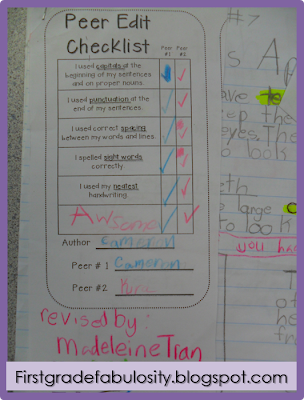 Peer Edit
Checklist
Peer #1
Peer #2
I used capitals at the
beginning of my sentences
and on proper nouns.
I used punctuation at the
end of my sentences.
I used correct spacing
between my words and lines.
I spelled sight words
correctly.
I used my neatest
handwriting.
Awsome
Author Cameron
Peer # 1 Cameron
Peer #2
revised by:
Madeleine Tran
#7
s Ap
ave te
eep the
eyes. The
to look
eth
e large
to look
you ha
Firstgradefabulosity.blogspot.com